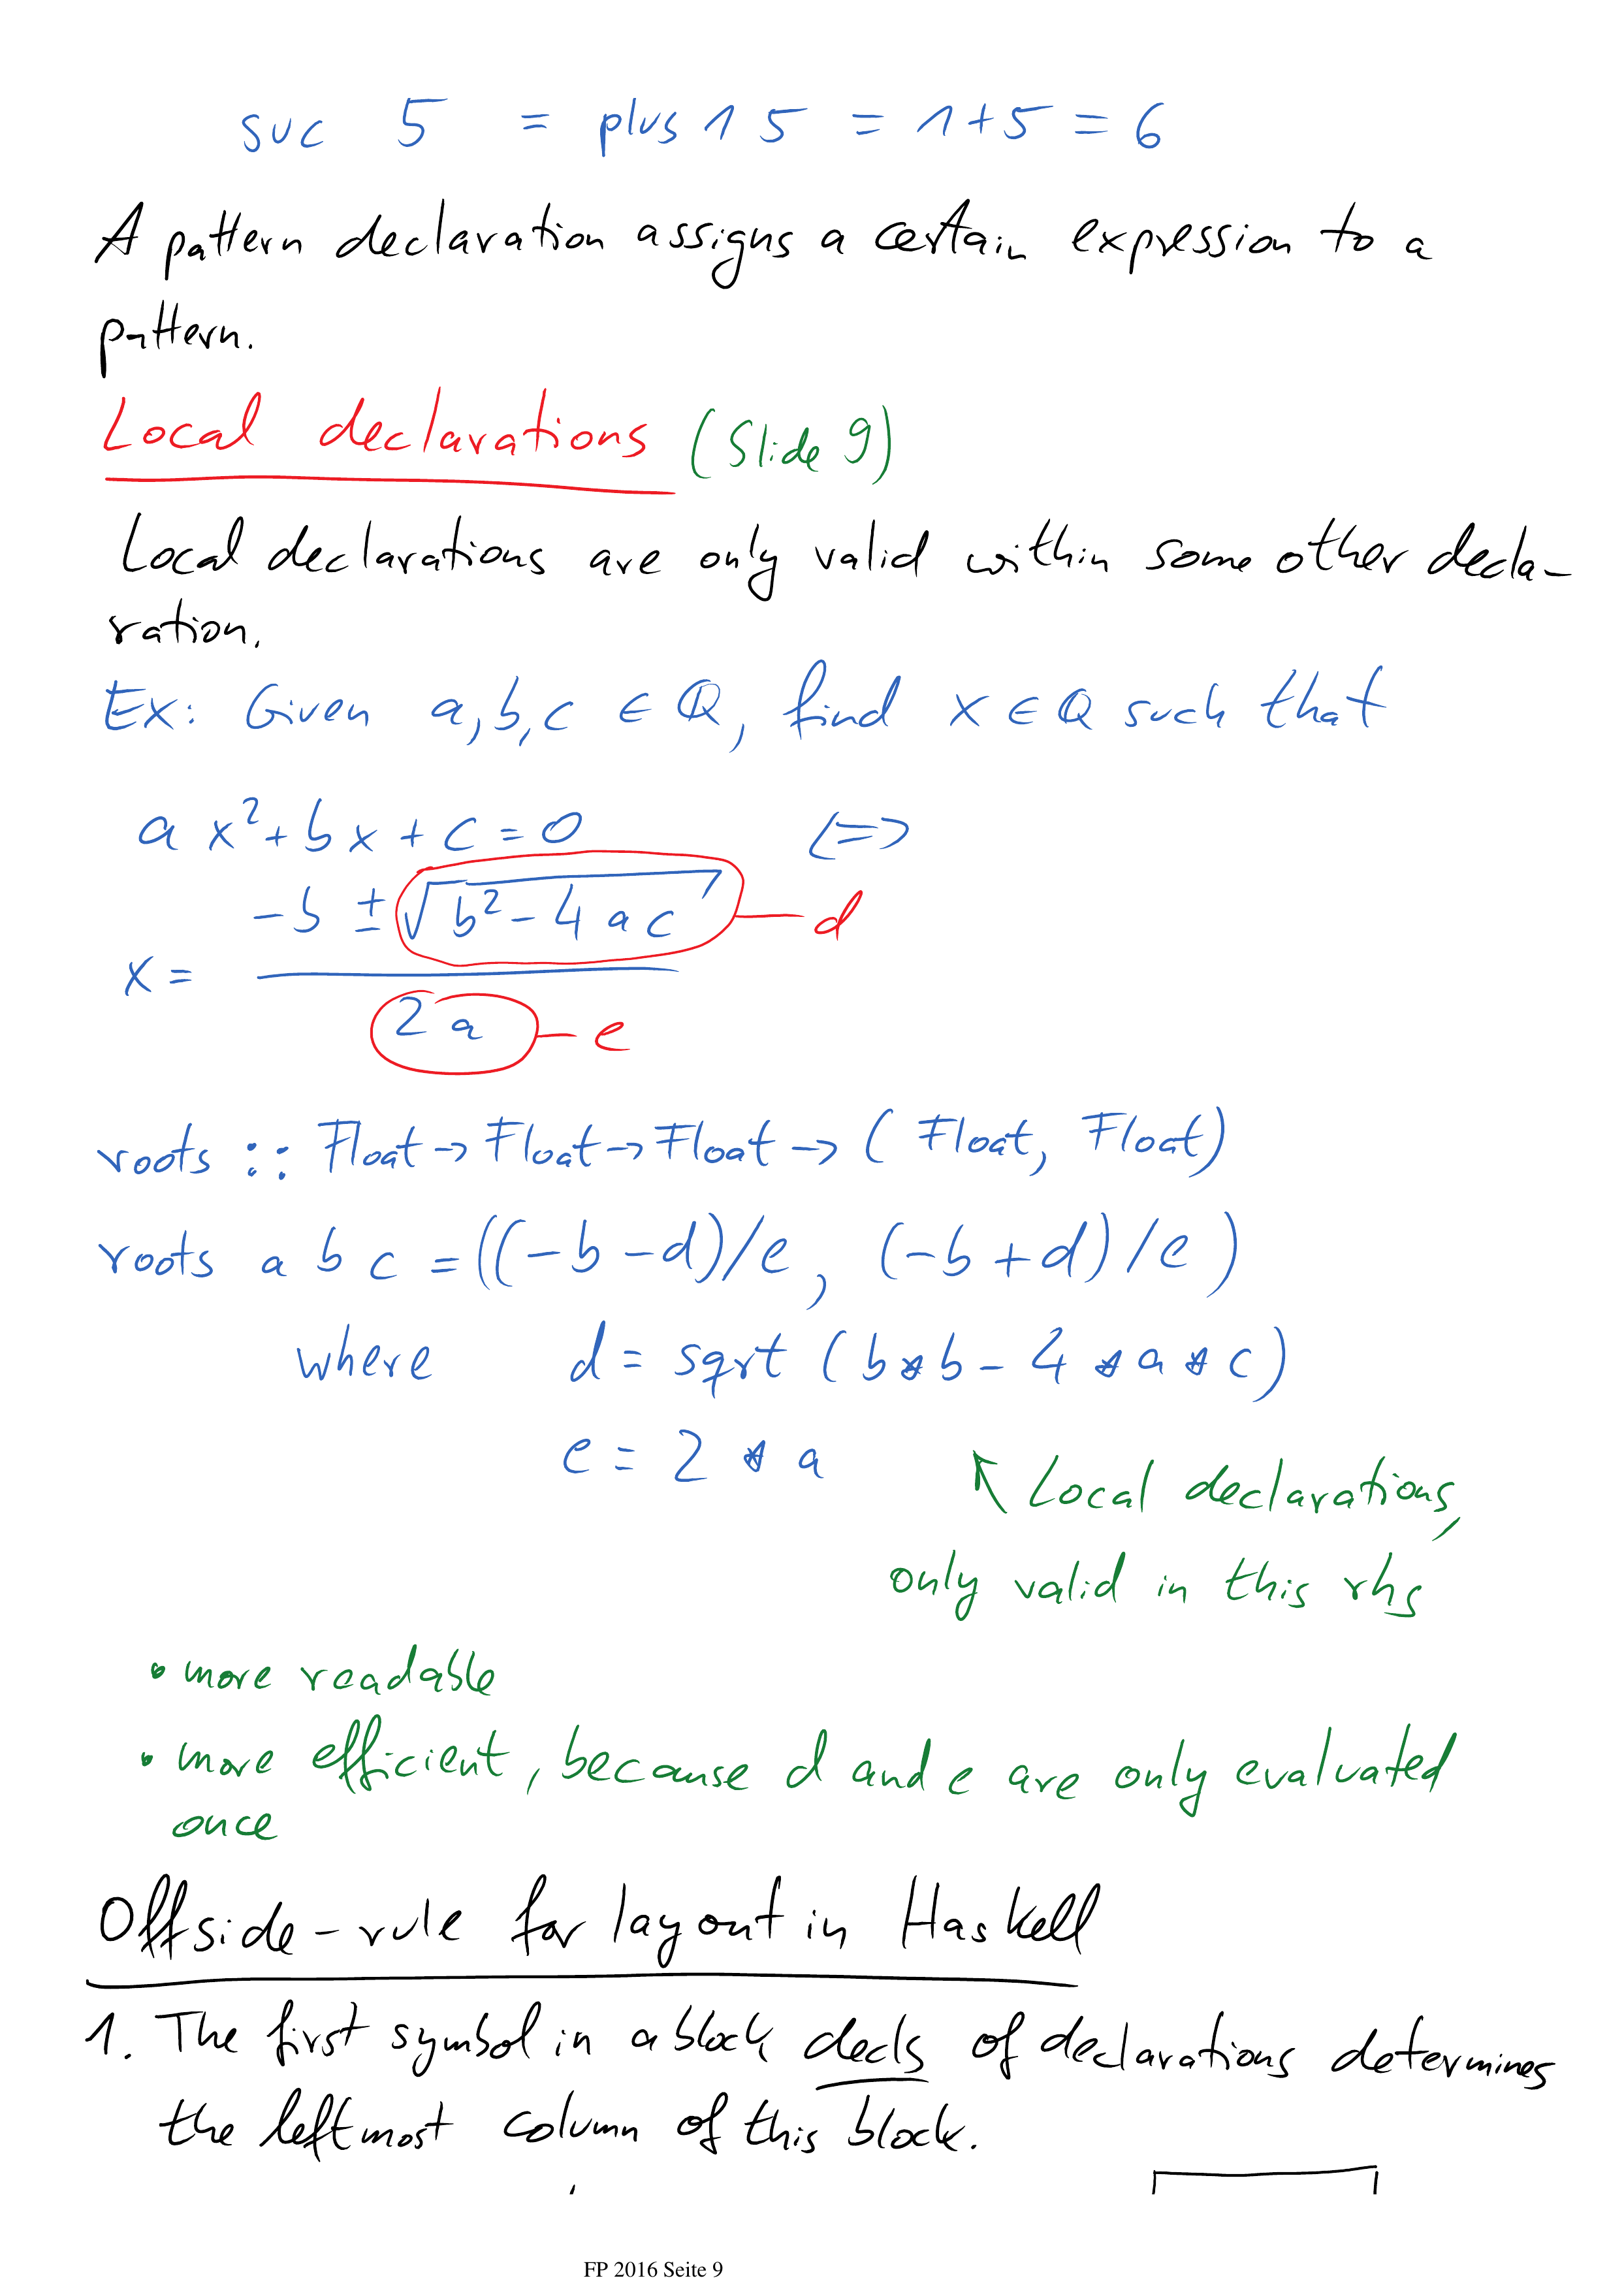 suc 5 = plus 1 5 = 1+5 = 6
A pattern declaration assigns a certain expression to a
pattern.
Local declarations (Slide 9)
Local declarations are only valid within some other decla-
ration.
Ex: Given a,b,c ∈ ℚ, find x ∈ ℚ such that
a x² + b x + c = 0 <=>
-b ± √b² - 4 a c — d
x =
2 a — e
roots :: Float -> Float -> Float -> (Float, Float)
roots a b c = ((-b -d)/e, (-b +d)/e)
where d = sqrt (b*b - 4 * a * c)
e = 2 * a
↖ Local declarations,
only valid in this rhs
• more readable
• more efficient, because d and e are only evaluated
once
Offside-rule for layout in Haskell
1. The first symbol in a block decls of declarations determines
the leftmost column of this block.
FP 2016 Seite 9